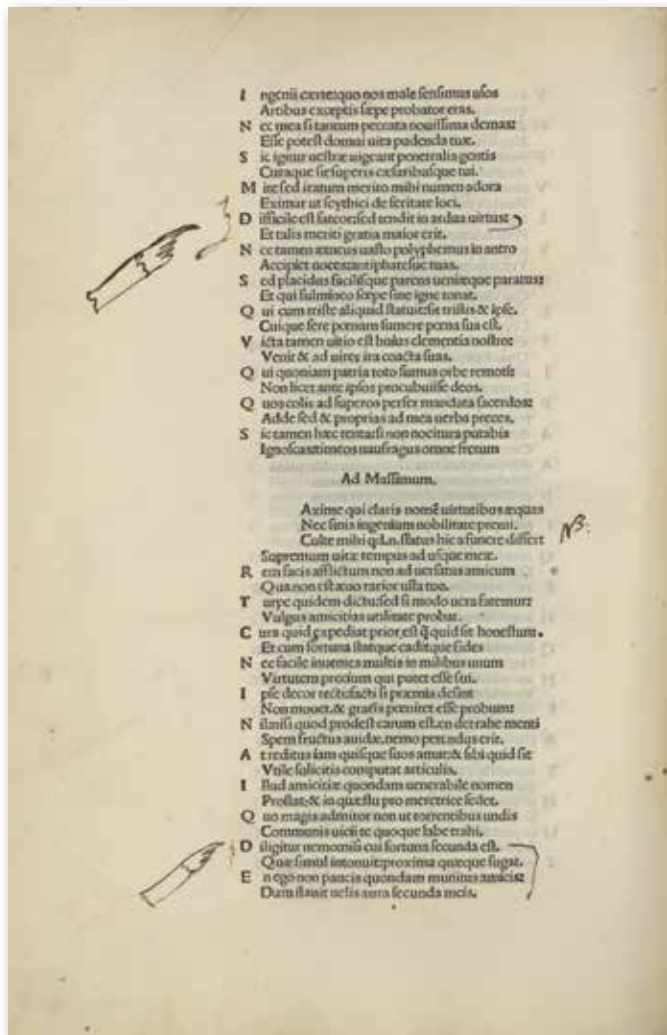 I ngenii certe: quo nos male sensimus usos
Artibus exceptis sæpe probator eras.
N ec mea si tantum peccata nouissima demas:
Esse potest domui uita pudenda tuæ.
S ic igitur uestræ uigeant penetralia gentis
Curaque sit superis cæsaribusque tui.
M ite sed iratum merito mihi numen adora
Eximar ut scythici de feritate loci.
D ifficile est fateor: sed tendit in ardua uirtus:
Et talis meriti gratia maior erit.
N ec tamen ætneus uasto polyphemus in antro
Accipiet uoces antiphatesue tuas.
S ed placidus facilisque parens ueniæque paratus:
Et qui fulmineo sæpe sine igne tonat.
Q ui cum triste aliquid statuit: fit tristis & ipse.
Cuique fere pœnam sumere pœna sua est.
V icta tamen uitio est huius clementia nostro:
Venit & ad uires ira coacta suas.
Q ui quoniam patria toto sumus orbe remoti:
Non licet ante ipsos procubuisse deos.
Q uos colis ad superos perfer mandata sacerdos:
Adde sed & proprias ad mea uerba preces.
S ic tamen hæc tenta: si non nocitura putabis
Ignoscas: timeo naufragus omne fretum
Ad Massimum.
Axime qui claris nomē uirtutibus æquas
Nec sinis ingenium nobilitate premi.
Culte mihi status hic a funere differt
NB.
Supremum uitæ tempus ad usque meæ.
R em facis afflictum non ad uersatus amicum
Qua non est æuo rarior ulla tuo.
T urpe quidem dictu: sed si modo uera fatemur:
Vulgus amicitias utilitate probat.
C ura quid expediat prior est q̄ quid sit honestum.
Et cum fortuna statque caditque fides
N ec facile inuenies multis in milibus unum
Virtutem precium qui putet esse sui.
I pse decor recti facti si præmia desint
Non mouet. & gratis pœnitet esse probum:
N il nisi quod prodest carum est. en detrahe menti
Spem fructus auidæ. nemo petendus erit.
A t reditus iam quisque suos amat: & sibi quid sit
Vtile solicitis computat articulis.
I llud amicitiæ quondam uenerabile nomen
Prostat: & in quæstu pro meretrice sedet.
Q uo magis admiror non ut torrentibus undis
Communis uicii te quoque labe trahi.
D iligitur nemo: nisi cui fortuna secunda est.
Quæ simul intonuit: proxima quæque fugat.
E n ego non paucis quondam munitus amicis:
Dum flauit uelis aura secunda meis.